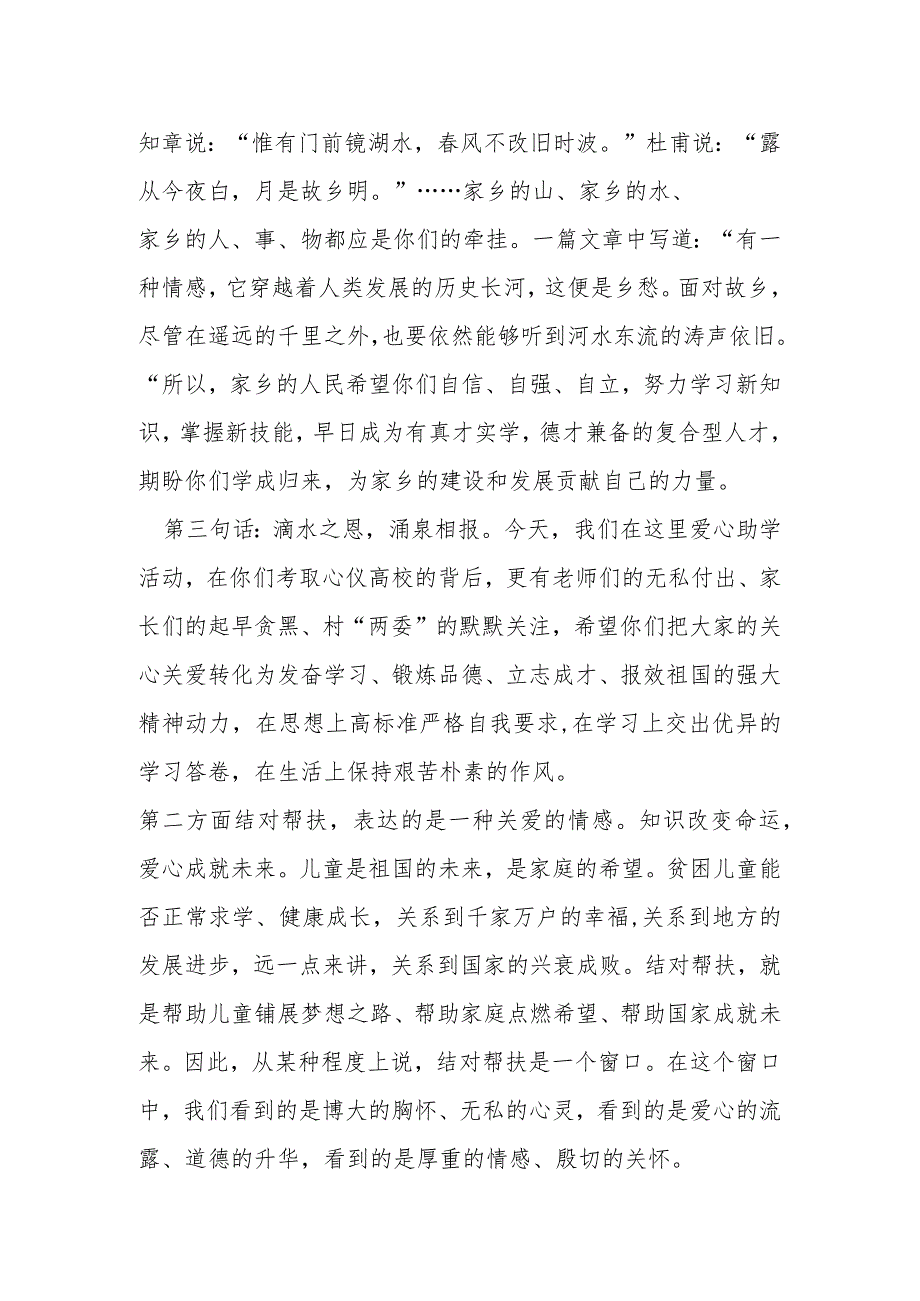 知章说：“惟有门前镜湖水，春风不改旧时波。”杜甫说：“露
从今夜白，月是故乡明。”……家乡的山、家乡的水、
家乡的人、事、物都应是你们的牵挂。一篇文章中写道：“有一
种情感，它穿越着人类发展的历史长河，这便是乡愁。面对故乡，
尽管在遥远的千里之外,也要依然能够听到河水东流的涛声依旧。
“所以，家乡的人民希望你们自信、自强、自立，努力学习新知
识，掌握新技能，早日成为有真才实学，德才兼备的复合型人才，
期盼你们学成归来，为家乡的建设和发展贡献自己的力量。
第三句话：滴水之恩，涌泉相报。今天，我们在这里爱心助学
活动，在你们考取心仪高校的背后，更有老师们的无私付出、家
长们的起早贪黑、村“两委”的默默关注，希望你们把大家的关
心关爱转化为发奋学习、锻炼品德、立志成才、报效祖国的强大
精神动力，在思想上高标准严格自我要求,在学习上交出优异的
学习答卷，在生活上保持艰苦朴素的作风。
第二方面结对帮扶，表达的是一种关爱的情感。知识改变命运，
爱心成就未来。儿童是祖国的未来，是家庭的希望。贫困儿童能
否正常求学、健康成长，关系到千家万户的幸福,关系到地方的
发展进步，远一点来讲，关系到国家的兴衰成败。结对帮扶，就
是帮助儿童铺展梦想之路、帮助家庭点燃希望、帮助国家成就未
来。因此，从某种程度上说，结对帮扶是一个窗口。在这个窗口
中，我们看到的是博大的胸怀、无私的心灵，看到的是爱心的流
露、道德的升华，看到的是厚重的情感、殷切的关怀。